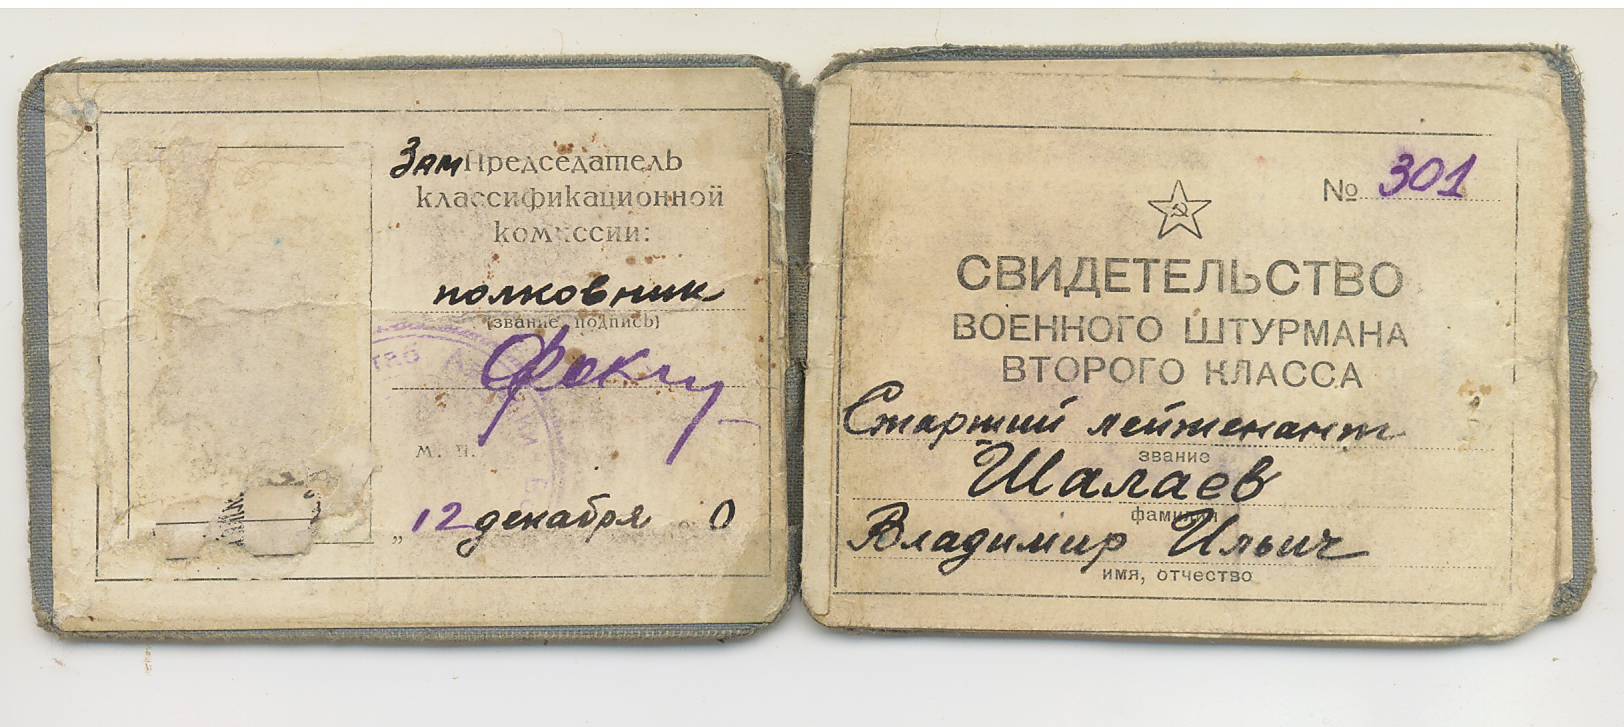 Зам Председатель
классификационной
комиссии:
полковник
(звание подпись)
м. п.
„12 декабря 0
№ 301
СВИДЕТЕЛЬСТВО
ВОЕННОГО ШТУРМАНА
ВТОРОГО КЛАССА
Старший лейтенант
звание
Шалаев
фамилия
Владимир Ильич
имя, отчество